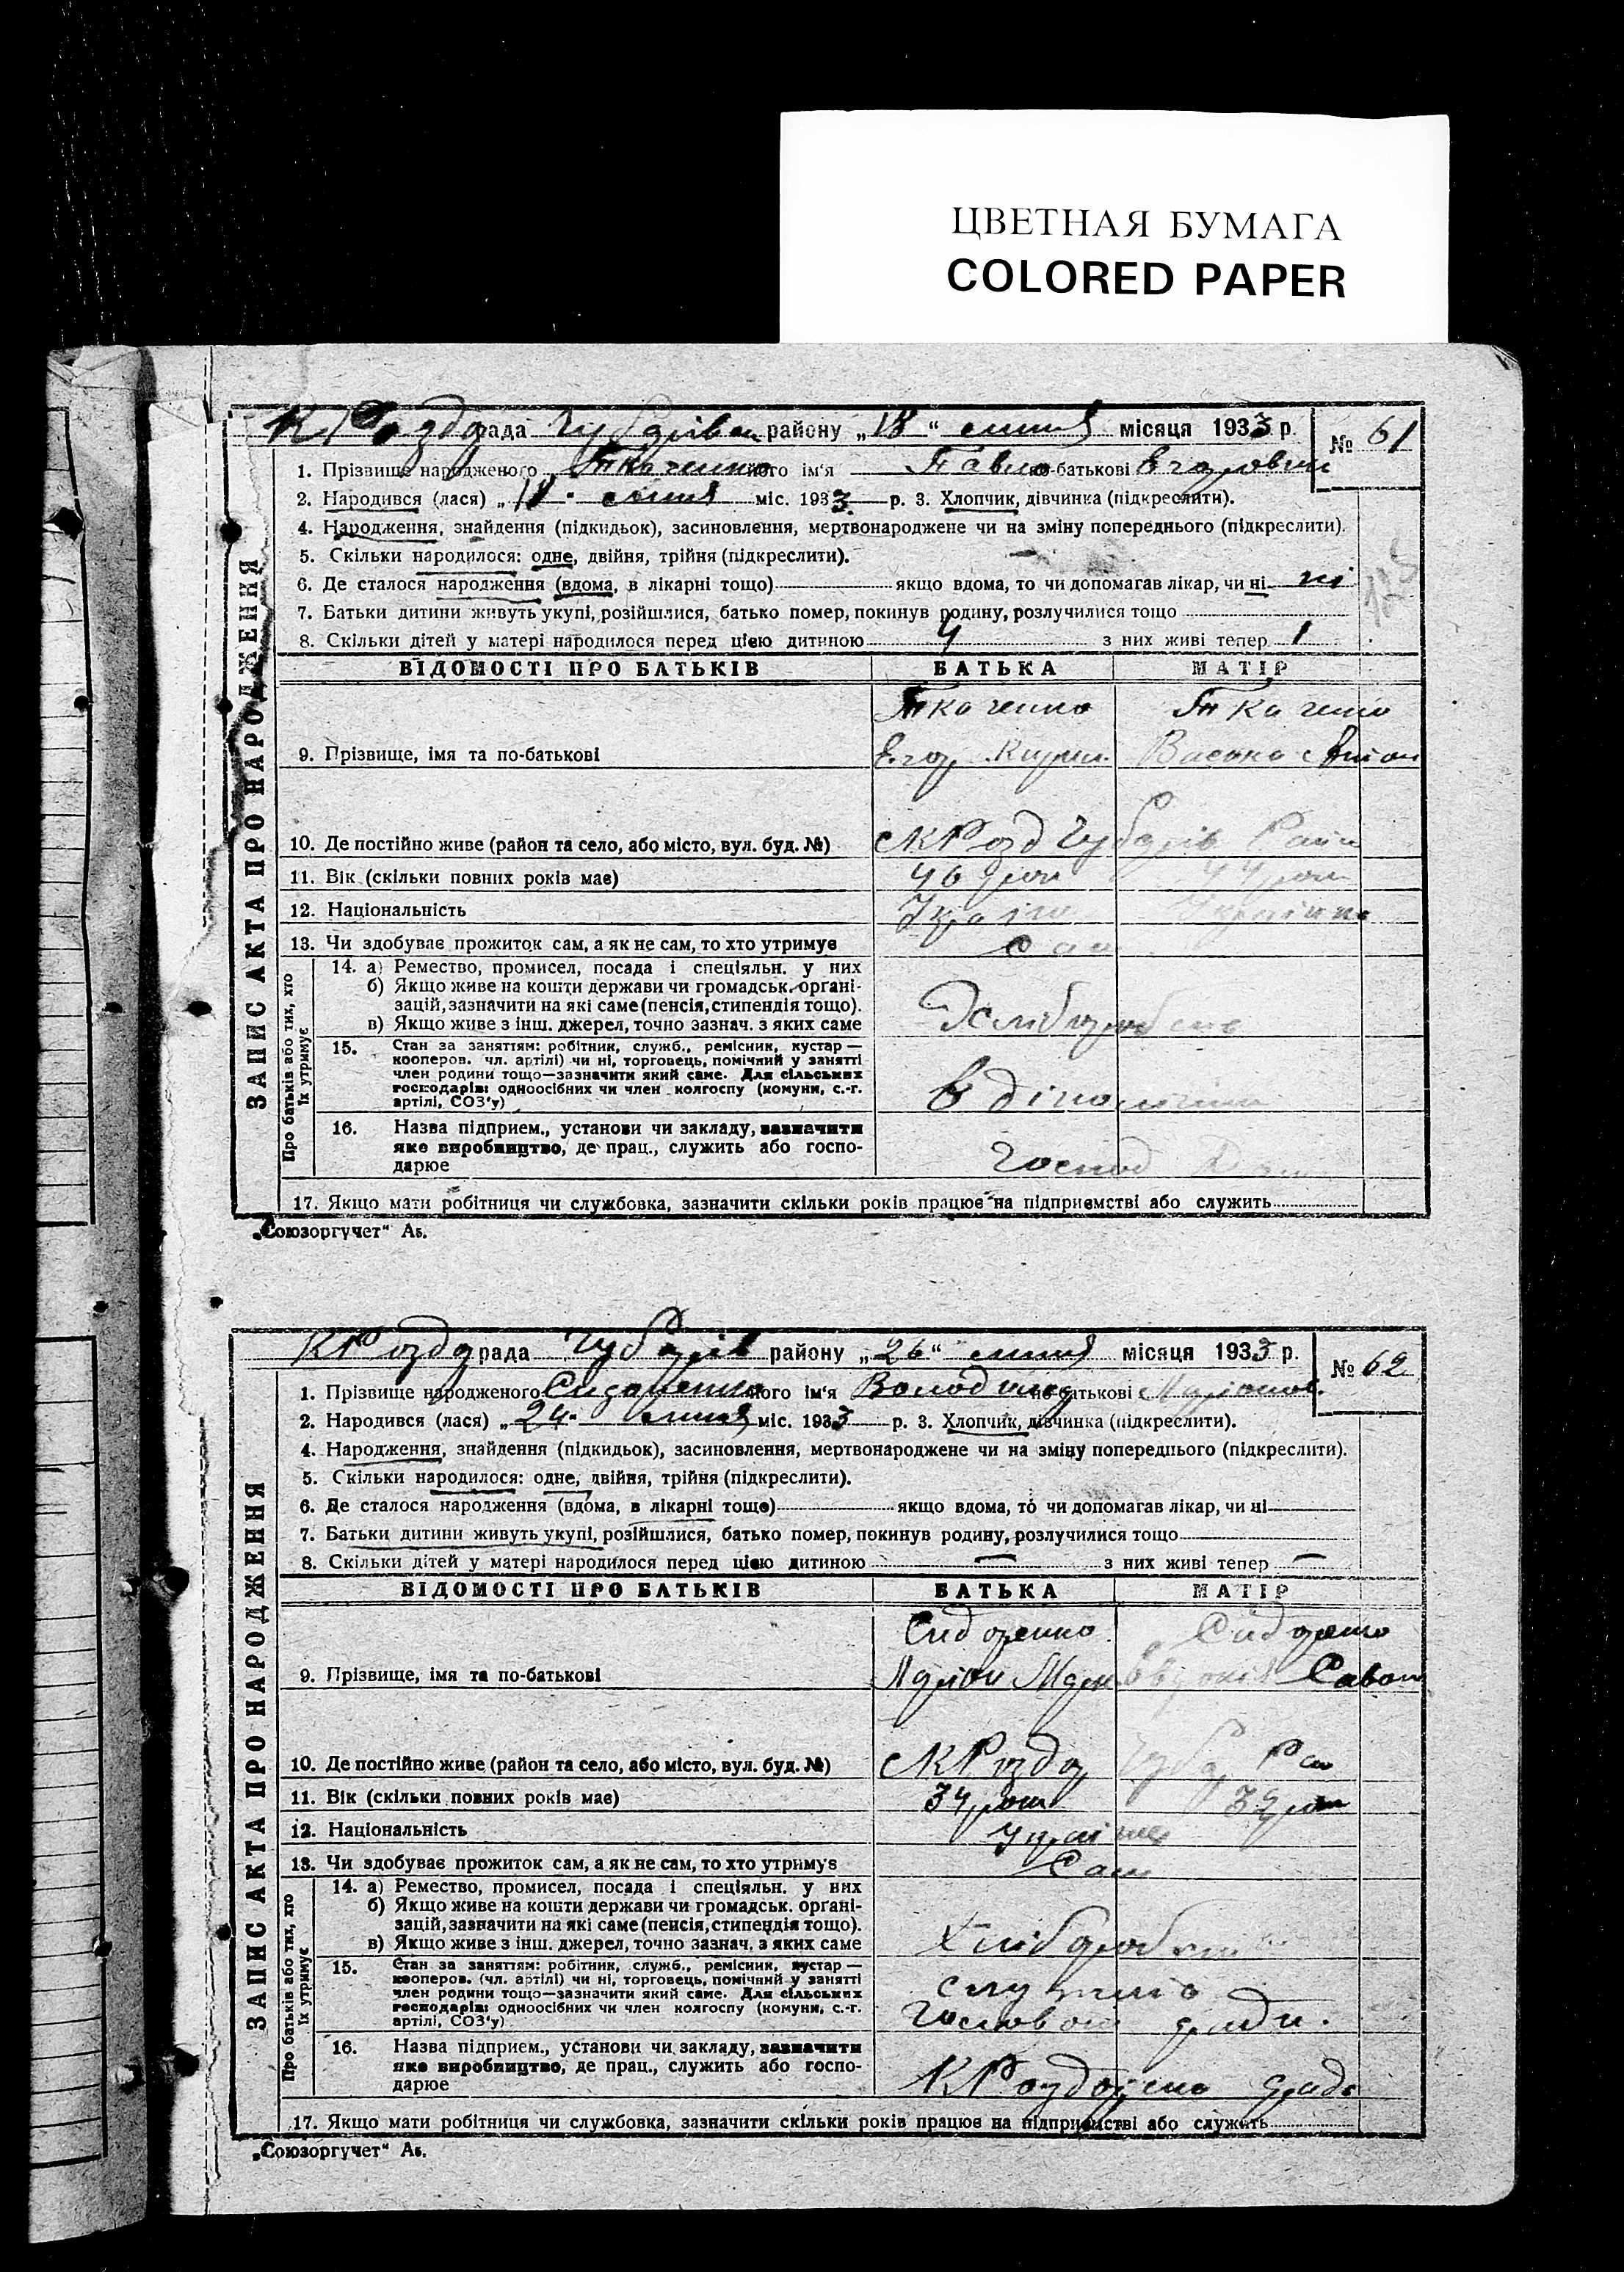 ЦВЕТНАЯ БУМАГА
COLORED PAPER
К Розд рада Чубарівск району „18“ липня місяця 1933 р. № 61
1. Прізвище народженого Ткаченко його ім'я Павло по-батькові Егорович
2. Народився (лася) „18“ липня міс. 1933 р. 3. Хлопчик, дівчинка (підкреслити).
4. Народження, знайдення (підкидьок), засиновлення, мертвонароджене чи на зміну попереднього (підкреслити).
5. Скільки народилося: одне, двійня, трійня (підкреслити).
6. Де сталося народження (вдома, в лікарні тощо) якщо вдома, то чи допомагав лікар, чи ні ні
7. Батьки дитини живуть укупі, розійшлися, батько помер, покинув родину, розлучилися тощо
8. Скільки дітей у матері народилося перед цією дитиною 4 з них живі тепер 1
ВІДОМОСТІ ПРО БАТЬКІВ БАТЬКА МАТІР
Ткаченко Ткаченко
9. Прізвище, імя та по-батькові Егор
10. Де постійно живе (район та село, або місто, вул. буд. №) с К Розд Чубарів Район
11. Вік (скільки повних років має) 46 рок 44 рок
12. Національність Україн Українка
13. Чи здобуває прожиток сам, а як не сам, то хто утримує Сам
14. а) Ремество, промисел, посада і спеціяльн. у них
б) Якщо живе на кошти держави чи громадськ. органі-
зацій, зазначити на які саме (пенсія, стипендія тощо).
в) Якщо живе з інш. джерел, точно зазнач. з яких саме
Хлібороб
15. Стан за заняттям: робітник, служб., ремісник, кустар —
кооперов. чл. артілі) чи ні, торговець, помічний у занятті
член родини тощо—зазначити який саме. Для сільських
господарів: одноосібних чи член колгоспу (комуни, с.-г.
артілі, СОЗ'у)
16. Назва підприєм., установи чи закладу, зазначити
яке виробництво, де прац., служить або госпо-
дарює
Господ
17. Якщо мати робітниця чи службовка, зазначити скільки років працює на підприємстві або служить
ЗАПИС АКТА ПРО НАРОДЖЕННЯ
Про батьків або тих, хто
їх утримує
„Союзоргучет“ Аб.
К Розд рада Чубарів району „26“ липня місяця 1933 р. № 62
1. Прізвище народженого Сидоренко його ім'я Володимир по-батькові
2. Народився (лася) „24“ липня міс. 1933 р. 3. Хлопчик, дівчинка (підкреслити).
4. Народження, знайдення (підкидьок), засиновлення, мертвонароджене чи на зміну попереднього (підкреслити).
5. Скільки народилося: одне, двійня, трійня (підкреслити).
6. Де сталося народження (вдома, в лікарні тощо) якщо вдома, то чи допомагав лікар, чи ні
7. Батьки дитини живуть укупі, розійшлися, батько помер, покинув родину, розлучилися тощо
8. Скільки дітей у матері народилося перед цією дитиною — з них живі тепер —
ВІДОМОСТІ ПРО БАТЬКІВ БАТЬКА МАТІР
Сидоренко Сидоренко
9. Прізвище, імя та по-батькові Савов
10. Де постійно живе (район та село, або місто, вул. буд. №) с К Розд Чубар Рай
11. Вік (скільки повних років має) 34 роки 32 рок
12. Національність Українці
13. Чи здобуває прожиток сам, а як не сам, то хто утримує Сам
14. а) Ремество, промисел, посада і спеціяльн. у них
б) Якщо живе на кошти держави чи громадськ. органі-
зацій, зазначити на які саме (пенсія, стипендія тощо).
в) Якщо живе з інш. джерел, точно зазнач. з яких саме
Хлібороб
15. Стан за заняттям: робітник, служб., ремісник, кустар —
кооперов. (чл. артілі) чи ні, торговець, помічний у занятті
член родини тощо—зазначити який саме. Для сільських
господарів: одноосібних чи член колгоспу (комуни, с.-г.
артілі, СОЗ'у)
16. Назва підприєм., установи чи закладу, зазначити
яке виробництво, де прац., служить або госпо-
дарює
17. Якщо мати робітниця чи службовка, зазначити скільки років працює на підприємстві або служить
ЗАПИС АКТА ПРО НАРОДЖЕННЯ
Про батьків або тих, хто
їх утримує
„Союзоргучет“ Аб.